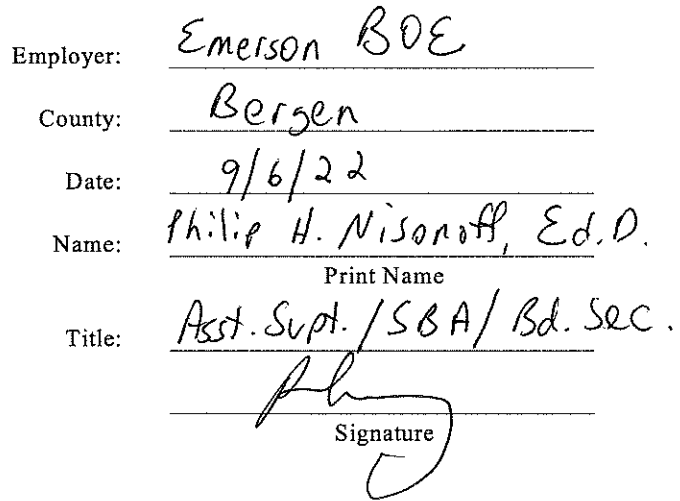 Employer: Emerson BOE
County: Bergen
Date: 9/6/22
Name: Philip H. Nisonoff, Ed.D.
Print Name
Title: Asst. Supt. / SBA / Bd. Sec.
Signature